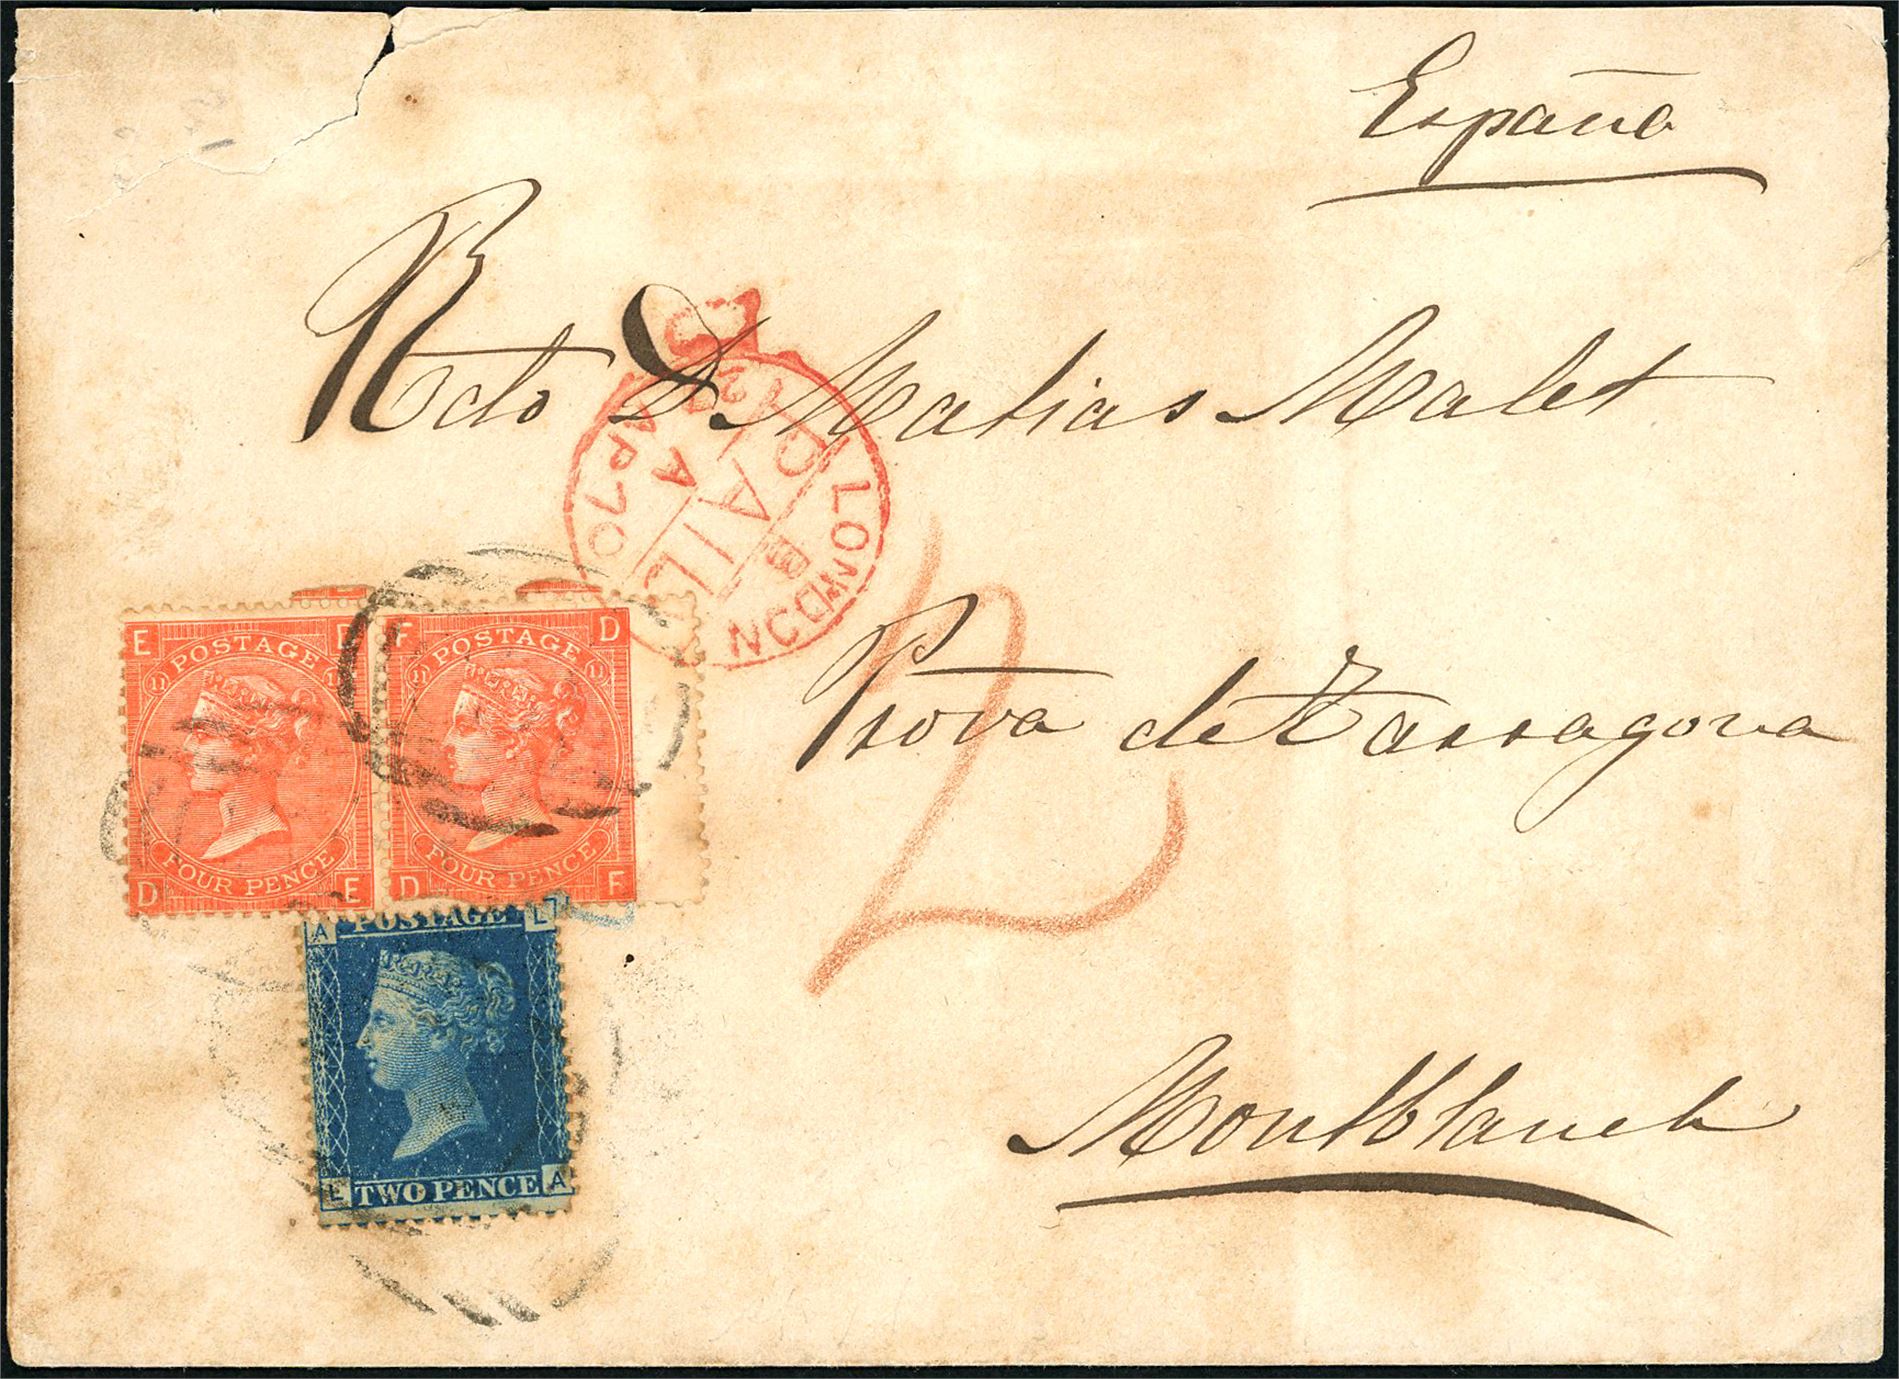 España
Rdo D. Matias Malet
LONDON
PAID
B
A
AP 70
Prova de Tarragona
2
Montblanch
E D F D
POSTAGE POSTAGE
11 11 11 11
FOUR PENCE FOUR PENCE
D E D F
A POSTAGE L
L TWO PENCE A